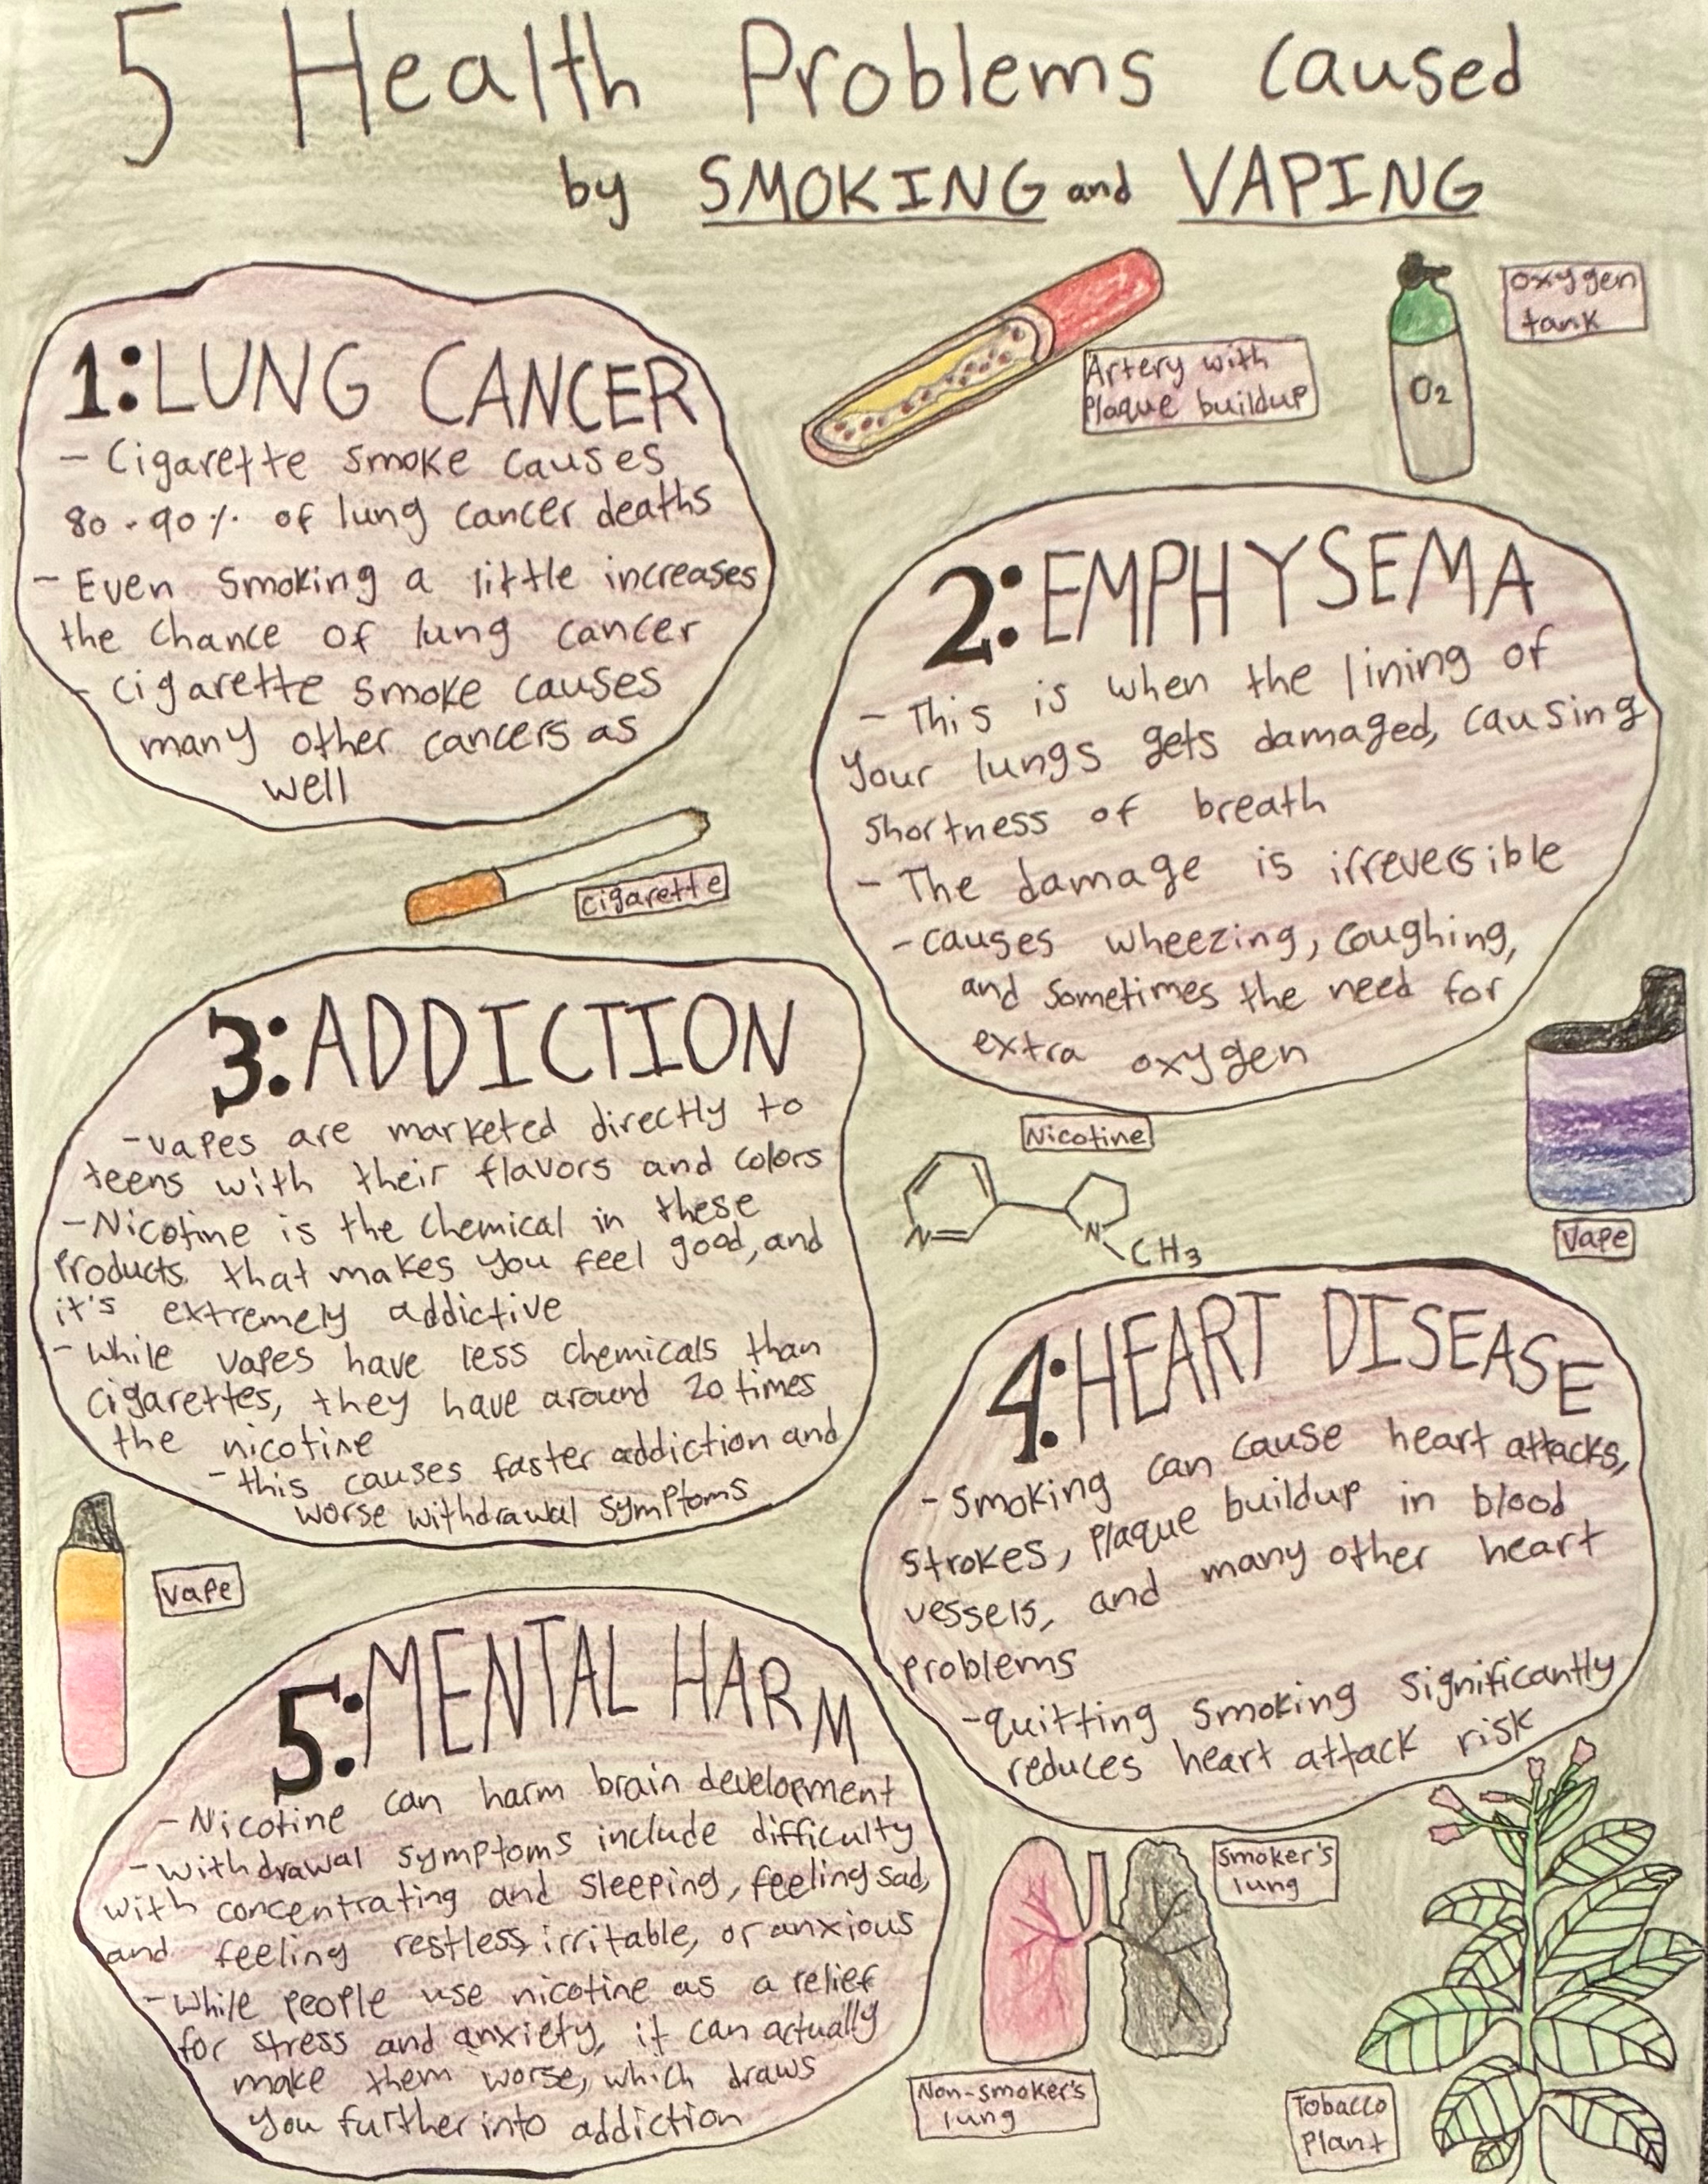 5 Health Problems caused
by SMOKING and VAPING
1: LUNG CANCER
- Cigarette smoke causes
80-90% of lung cancer deaths
- Even smoking a little increases
the chance of lung cancer
- cigarette smoke causes
many other cancers as
well
Artery with
plaque buildup
O2
oxygen
tank
2: EMPHYSEMA
- This is when the lining of
your lungs gets damaged, causing
shortness of breath
- The damage is irreversible
- causes wheezing, coughing,
and sometimes the need for
extra oxygen
cigarette
3: ADDICTION
- vapes are marketed directly to
teens with their flavors and colors
- Nicotine is the chemical in these
products that makes you feel good, and
it's extremely addictive
- while vapes have less chemicals than
cigarettes, they have around 20 times
the nicotine
- this causes faster addiction and
worse withdrawal symptoms
Nicotine
N
N
CH3
Vape
4: HEART DISEASE
- smoking can cause heart attacks,
strokes, plaque buildup in blood
vessels, and many other heart
problems
- quitting smoking significantly
reduces heart attack risk
vape
5: MENTAL HARM
- Nicotine can harm brain development
- withdrawal symptoms include difficulty
with concentrating and sleeping, feeling sad,
and feeling restless, irritable, or anxious
- while people use nicotine as a relief
for stress and anxiety, it can actually
make them worse, which draws
you further into addiction
Smoker's
lung
Non-smoker's
lung
Tobacco
Plant